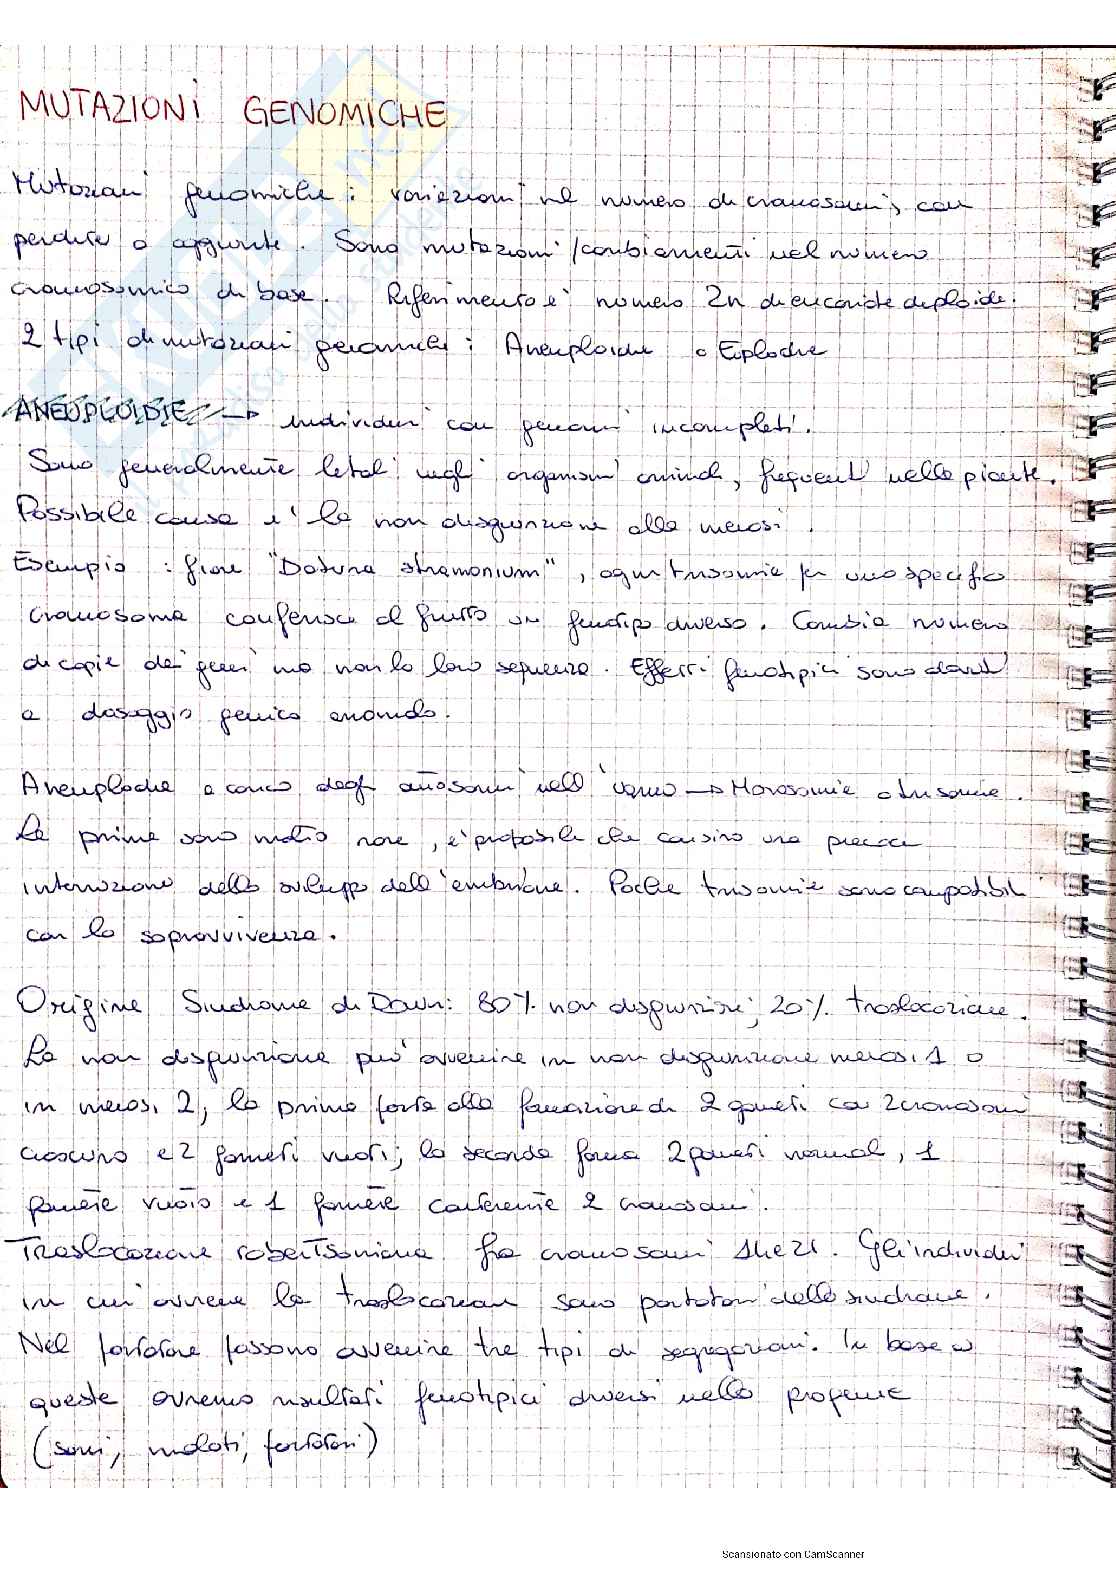 MUTAZIONI GENOMICHE
Mutazioni genomiche: variazioni nel numero di cromosomi, con
perdite o aggiunte. Sono mutazioni/cambiamenti nel numero
cromosomico di base. Riferimento è numero 2n di eucariote diploide.
2 tipi di mutazioni genomiche: Aneuploidie o Euploidie
ANEUPLOIDIE → individui con genomi incompleti.
Sono generalmente letali negli organismi animali, frequenti nelle piante.
Possibile causa e' la non disgiunzione alla meiosi.
Esempio: fiore "Datura stramonium", ogni trisomia per uno specifico
cromosoma conferisce al frutto un fenotipo diverso. Cambia numero
di copie dei geni ma non la loro sequenza. Effetti fenotipici sono dovuti
a dosaggio genico anomalo.
Aneuploidie a carico degli autosomi nell'uomo → Monosomie o trisomie.
Le prime sono molto rare, e' probabile che causino una precoce
interruzione dello sviluppo dell'embrione. Poche trisomie sono compatibili
con la sopravvivenza.
Origine Sindrome di Down: 80% non disgiunzioni; 20% traslocazione.
La non disgiunzione può avvenire in non disgiunzione meiosi 1 o
in meiosi 2, la prima porta alla formazione di 2 gameti con 2 cromosomi
ciascuno e 2 gameti vuoti; la seconda forma 2 gameti normali, 1
gamete vuoto e 1 gamete contenente 2 cromosomi.
Traslocazione robertsoniana fra cromosomi 14 e 21. Gli individui
in cui avviene la traslocazione sono portatori della sindrome.
Nel portatore possono avvenire tre tipi di segregazioni. In base a
queste avremo risultati fenotipici diversi nella progenie
(sani, malati, portatori)
Scansionato con CamScanner